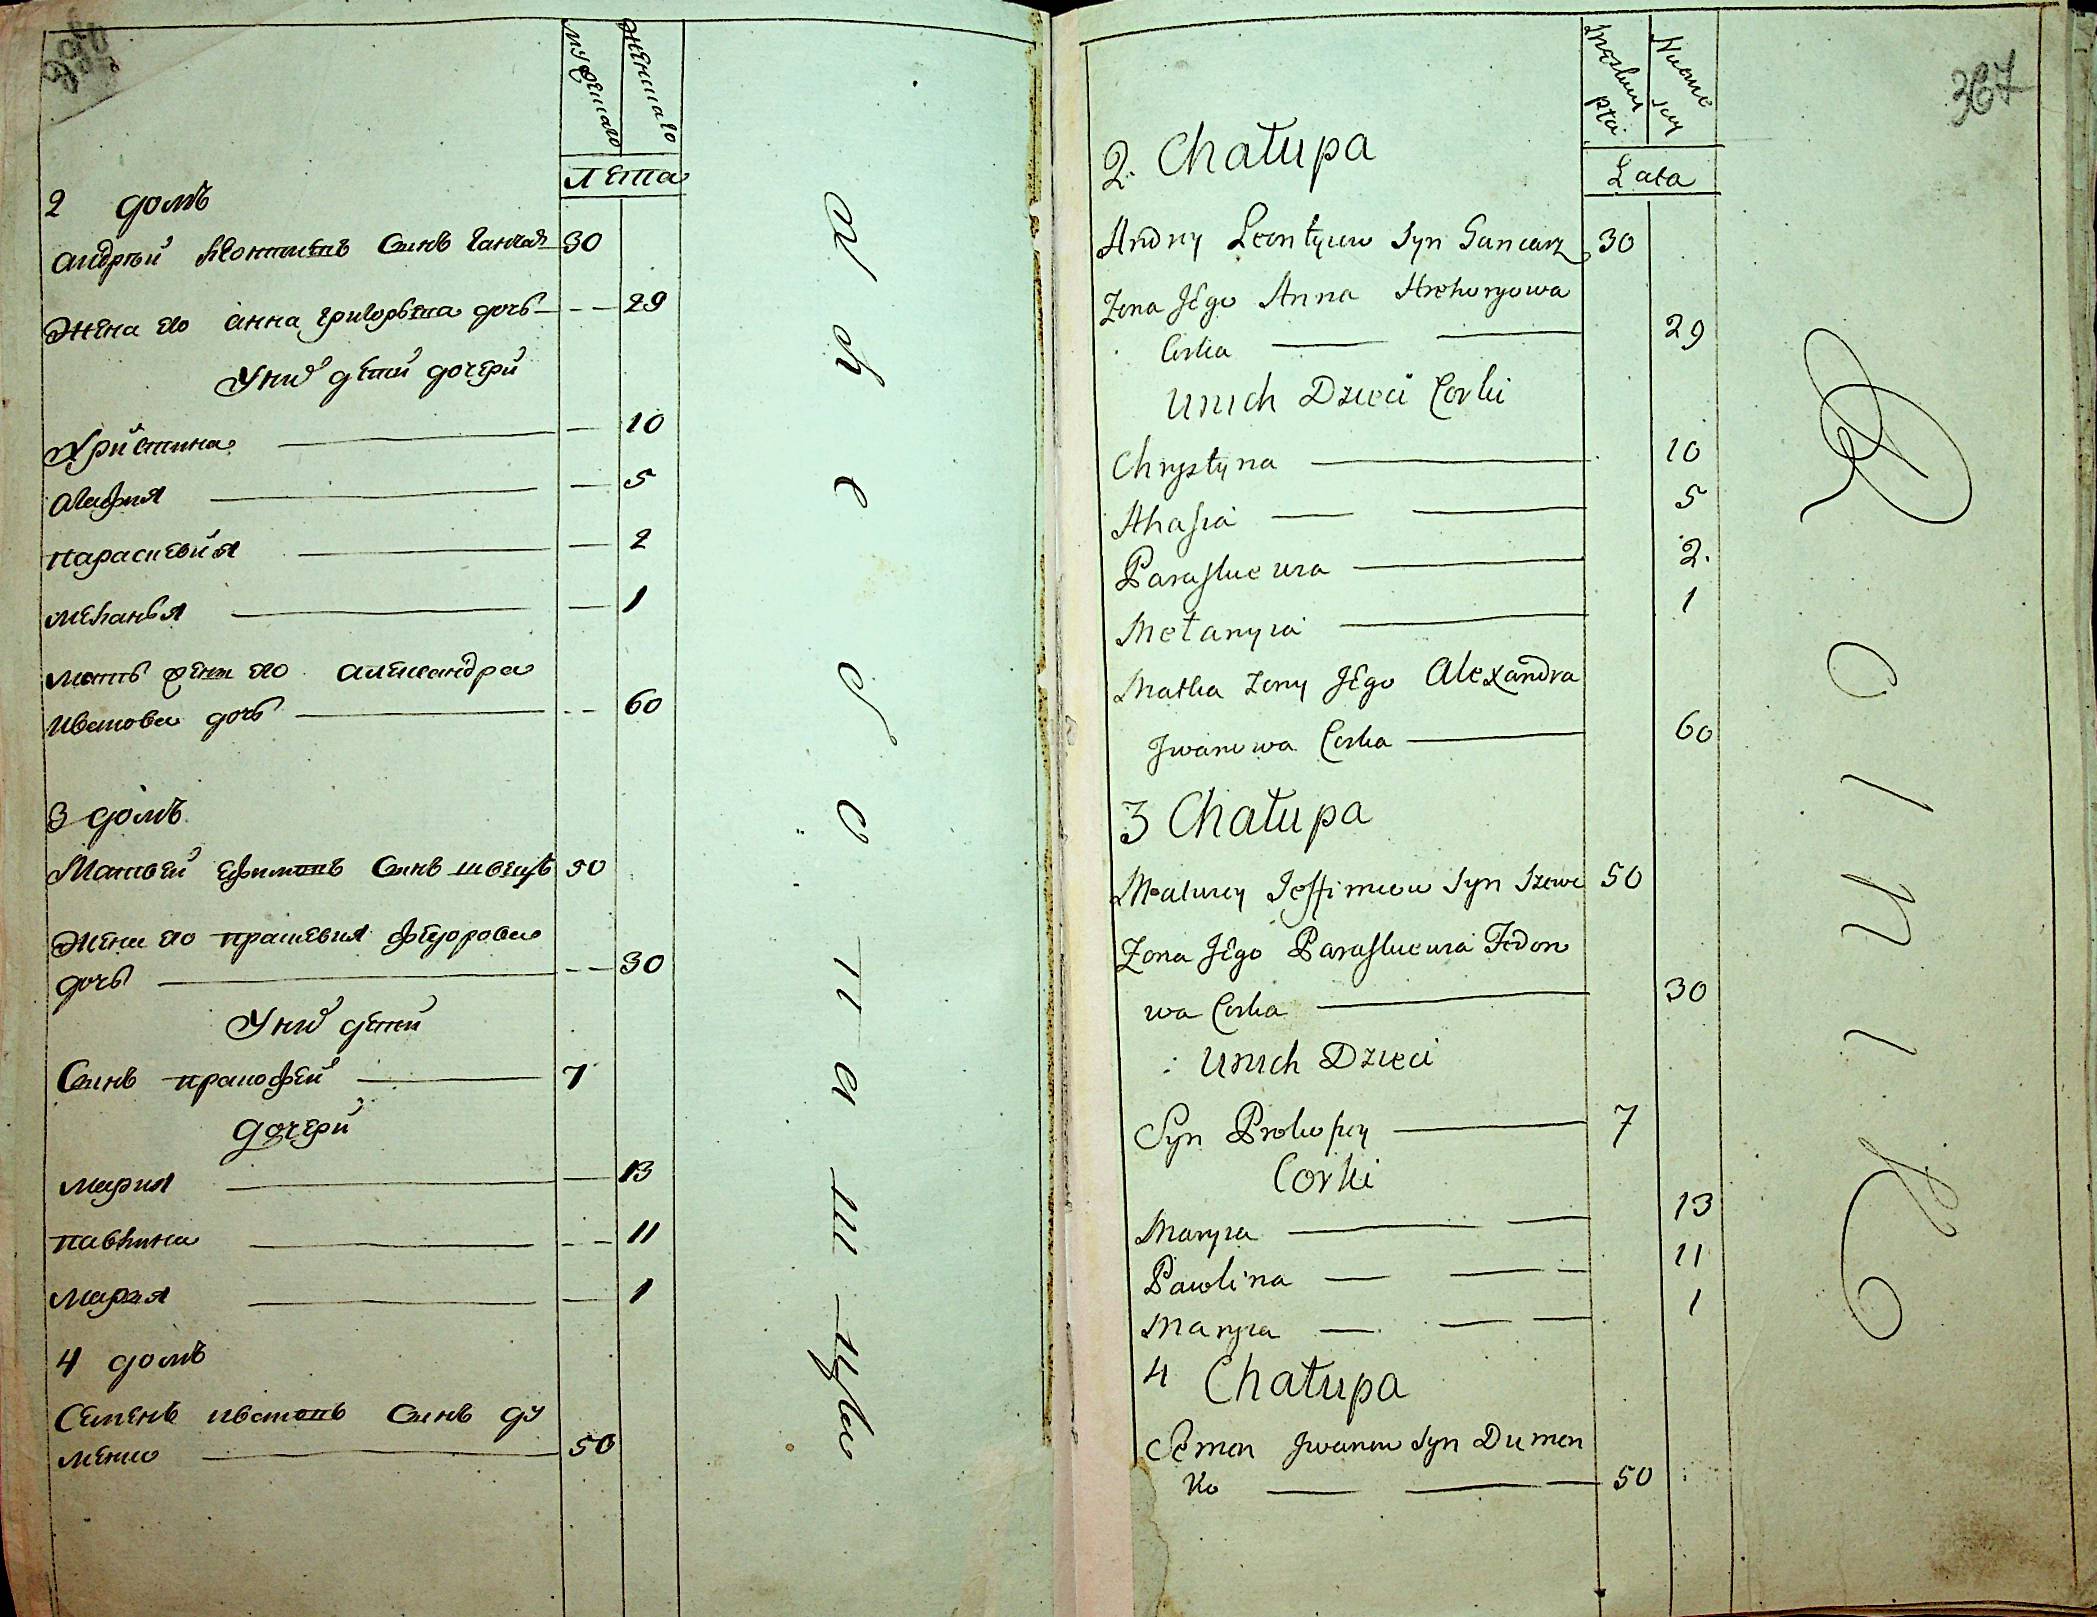 мужеска
женска
лета
2 домъ
андрѣй леонтиевъ синъ ганчаръ 30
жена его анна григорьева дочь 29
У нихъ дети дочери
Христина 10
агафия 5
параскевия 2
меланья 1
мать жены его александра
иванова дочь 60
3 домъ
Матвей ефимовъ синъ швецъ 50
жена его праскевия федорова
дочь 30
У нихъ дети
Синъ прокофей 7
дочери
мария 13
павлина 11
мария 1
4 домъ
Семенъ ивановъ синъ ду
менко 50
367
Lata
2. Chałupa
Andry Leontyiew Syn Gancarz 30
Zona Jego Anna Hrehoryowa
Corka 29
Unich Dzieci Corki
Chrystyna 10
Ahafia 5
Paraskiewia 2.
Mełanyia 1
Matka Zony Jego Alexandra
Jwanowa Corka 60
3 Chałupa
Matwiey Jeffimiew Syn Szewc 50
Zona Jego Paraskiewia Fedoro
wa Corka 30
Unich Dzieci
Syn Prokopiy 7
Corki
Maryia 13
Pawlina 11
Maryia 1
4 Chałupa
Semen Jwanow Syn Dumen
ko 50